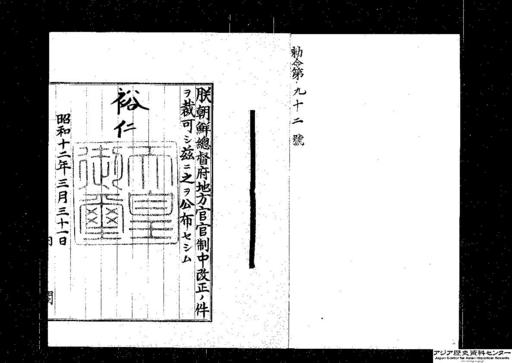 勅令第九十二號
朕朝鮮總督府地方官官制中改正ノ件
ヲ裁可シ茲ニ之ヲ公布セシム
裕仁
天皇御璽
昭和十二年三月三十一日
アジア歴史資料センター
Japan Center for Asian Historical Records